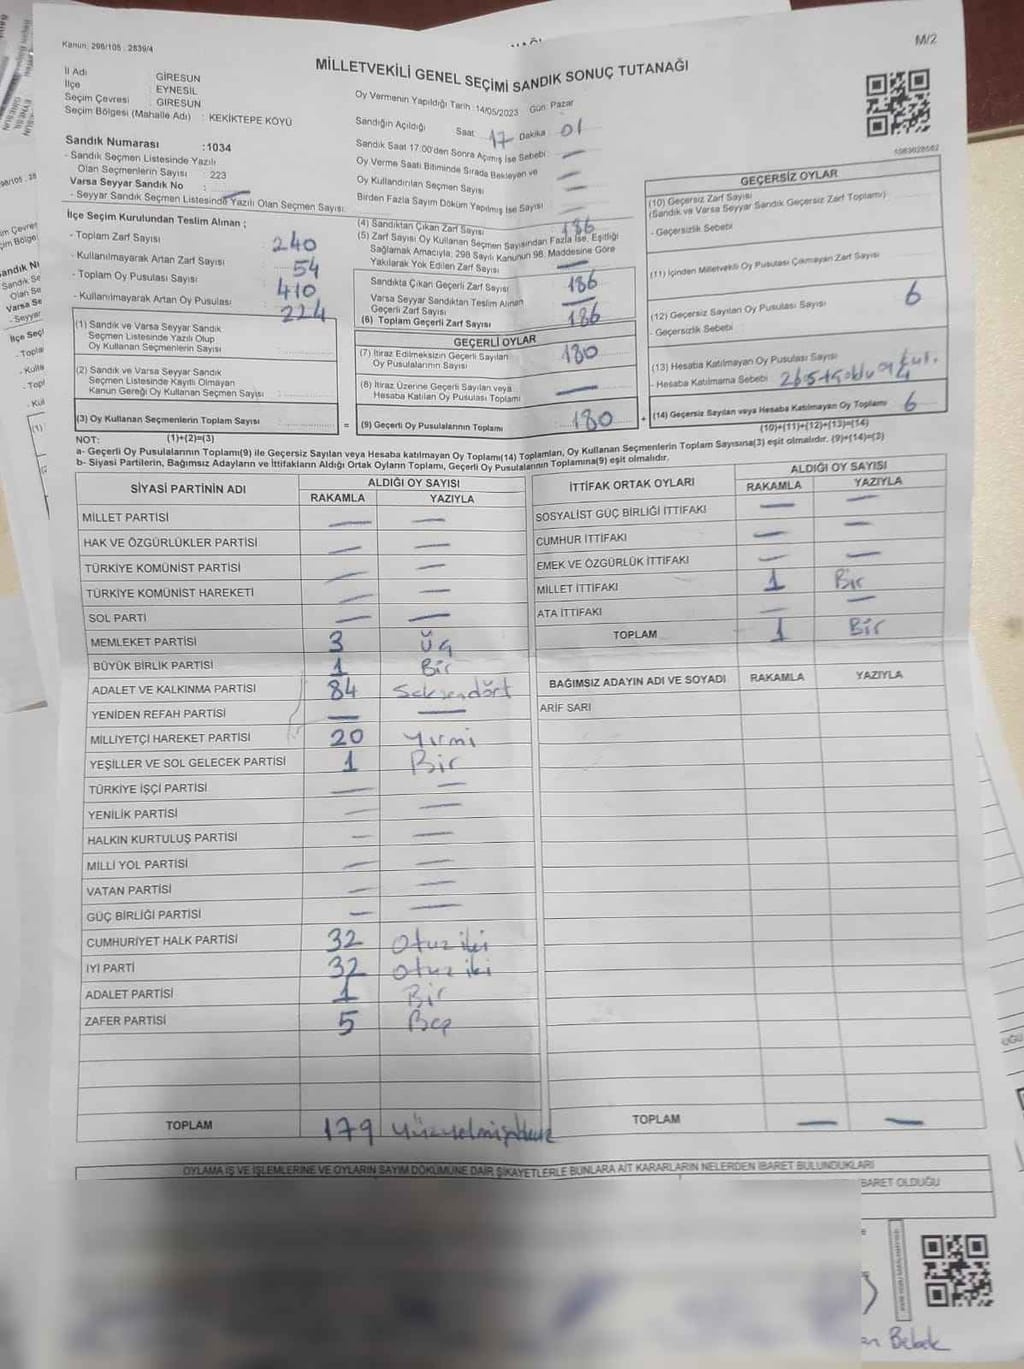 Kanun: 298/105 : 2839/4
M/2
MİLLETVEKİLİ GENEL SEÇİMİ SANDIK SONUÇ TUTANAĞI
İl Adı GİRESUN
İlçe EYNESİL
Seçim Çevresi GİRESUN
Seçim Bölgesi (Mahalle Adı) : KEKİKTEPE KÖYÜ
Sandık Numarası :1034
- Sandık Seçmen Listesinde Yazılı
Olan Seçmenlerin Sayısı : 223
Varsa Seyyar Sandık No :
- Seyyar Sandık Seçmen Listesinde Yazılı Olan Seçmen Sayısı:
Oy Vermenin Yapıldığı Tarih :14/05/2023 Gün: Pazar
Sandığın Açıldığı Saat 17 Dakika 01
Sandık Saat 17.00'den Sonra Açılmış İse Sebebi: —
Oy Verme Saati Bitiminde Sırada Bekleyen ve
Oy Kullandırılan Seçmen Sayısı —
Birden Fazla Sayım Döküm Yapılmış İse Sayısı —
İlçe Seçim Kurulundan Teslim Alınan ;
- Toplam Zarf Sayısı 240
- Kullanılmayarak Artan Zarf Sayısı 54
- Toplam Oy Pusulası Sayısı 410
- Kullanılmayarak Artan Oy Pusulası 224
(1) Sandık ve Varsa Seyyar Sandık
Seçmen Listesinde Yazılı Olup
Oy Kullanan Seçmenlerin Sayısı :
(2) Sandık ve Varsa Seyyar Sandık
Seçmen Listesinde Kayıtlı Olmayan
Kanun Gereği Oy Kullanan Seçmen Sayısı :
(3) Oy Kullanan Seçmenlerin Toplam Sayısı :
(1)+(2)=(3)
(4) Sandıktan Çıkan Zarf Sayısı 186
(5) Zarf Sayısı Oy Kullanan Seçmen Sayısından Fazla İse, Eşitliği
Sağlamak Amacıyla, 298 Sayılı Kanunun 98. Maddesine Göre
Yakılarak Yok Edilen Zarf Sayısı —
Sandıkta Çıkan Geçerli Zarf Sayısı 186
Varsa Seyyar Sandıktan Teslim Alınan
Geçerli Zarf Sayısı —
(6) Toplam Geçerli Zarf Sayısı 186
GEÇERLİ OYLAR
(7) İtiraz Edilmeksizin Geçerli Sayılan
Oy Pusulalarının Sayısı 180
(8) İtiraz Üzerine Geçerli Sayılan veya
Hesaba Katılan Oy Pusulası Toplamı —
= (9) Geçerli Oy Pusulalarının Toplamı 180 +
GEÇERSİZ OYLAR
(10) Geçersiz Zarf Sayısı
(Sandık ve Varsa Seyyar Sandık Geçersiz Zarf Toplamı)
- Geçersizlik Sebebi
(11) İçinden Milletvekili Oy Pusulası Çıkmayan Zarf Sayısı
(12) Geçersiz Sayılan Oy Pusulası Sayısı 6
- Geçersizlik Sebebi :
(13) Hesaba Katılmayan Oy Pusulası Sayısı
- Hesaba Katılmama Sebebi
(14) Geçersiz Sayılan veya Hesaba Katılmayan Oy Toplamı 6
(10)+(11)+(12)+(13)=(14)
NOT:
a- Geçerli Oy Pusulalarının Toplamı(9) ile Geçersiz Sayılan veya Hesaba katılmayan Oy Toplamı(14) Toplamları, Oy Kullanan Seçmenlerin Toplam Sayısına(3) eşit olmalıdır. (9)+(14)=(3)
b- Siyasi Partilerin, Bağımsız Adayların ve İttifakların Aldığı Ortak Oyların Toplamı, Geçerli Oy Pusulalarının Toplamına(9) eşit olmalıdır.
SİYASİ PARTİNİN ADI ALDIĞI OY SAYISI
RAKAMLA YAZIYLA
MİLLET PARTİSİ — —
HAK VE ÖZGÜRLÜKLER PARTİSİ — —
TÜRKİYE KOMÜNİST PARTİSİ — —
TÜRKİYE KOMÜNİST HAREKETİ — —
SOL PARTİ — —
MEMLEKET PARTİSİ 3 Üç
BÜYÜK BİRLİK PARTİSİ 1 Bir
ADALET VE KALKINMA PARTİSİ 84 Seksendört
YENİDEN REFAH PARTİSİ — —
MİLLİYETÇİ HAREKET PARTİSİ 20 Yirmi
YEŞİLLER VE SOL GELECEK PARTİSİ 1 Bir
TÜRKİYE İŞÇİ PARTİSİ — —
YENİLİK PARTİSİ — —
HALKIN KURTULUŞ PARTİSİ — —
MİLLİ YOL PARTİSİ — —
VATAN PARTİSİ — —
GÜÇ BİRLİĞİ PARTİSİ — —
CUMHURİYET HALK PARTİSİ 32 otuz iki
İYİ PARTİ 32 otuz iki
ADALET PARTİSİ 1 Bir
ZAFER PARTİSİ 5 Beş
TOPLAM 179
İTTİFAK ORTAK OYLARI ALDIĞI OY SAYISI
RAKAMLA YAZIYLA
SOSYALİST GÜÇ BİRLİĞİ İTTİFAKI — —
CUMHUR İTTİFAKI — —
EMEK VE ÖZGÜRLÜK İTTİFAKI — —
MİLLET İTTİFAKI 1 Bir
ATA İTTİFAKI — —
TOPLAM 1 Bir
BAĞIMSIZ ADAYIN ADI VE SOYADI RAKAMLA YAZIYLA
ARİF SARI
TOPLAM — —
OYLAMA İŞ VE İŞLEMLERİNE VE OYLARIN SAYIM DÖKÜMÜNE DAİR ŞİKAYETLERLE BUNLARA AİT KARARLARIN NELERDEN İBARET BULUNDUKLARI
BARET OLDUĞU
Bebek